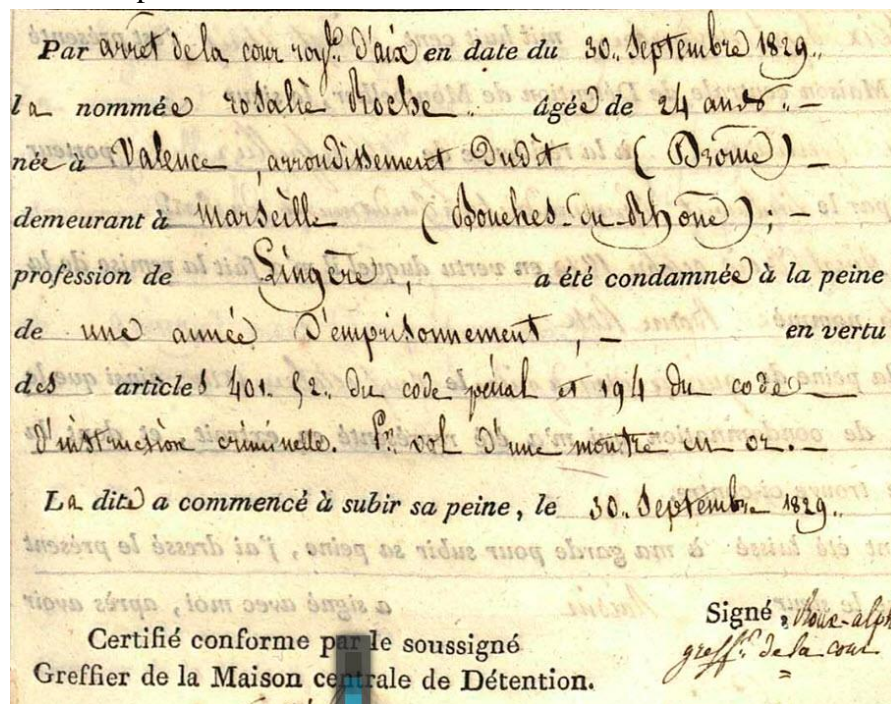 Par arrêt de la cour roy.le d'aix en date du 30. Septembre 1829.
la nommée rosalie Roche. âgée de 24 ands. —
née à Valence, arrondissement Dudit (Drôme) —
demeurant à Marseille (Bouches-du-Rhône), —
profession de Lingère, a été condamnée à la peine
de une année d'emprisonnement, — en vertu
des articles 401. §2. du code pénal et 194 du code —
d'instruction criminelle. Pr. vol d'une montre en or. —
La dite a commencé à subir sa peine, le 30. Septembre 1829.
Signé, Roux-alph
greff.er de la cour
Certifié conforme par le soussigné
Greffier de la Maison centrale de Détention.